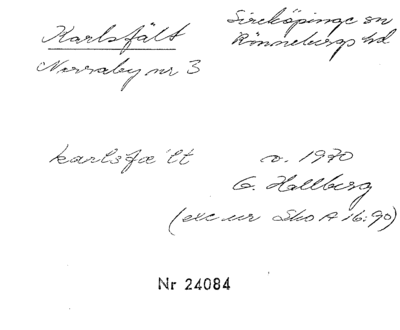 Karlsfält
Sireköpinge sn
Rönnebergs hd
Norraby nr 3
karlsfæ´lt
v. 1930
G. Hallberg
(exc ur Sko A 16:90)
Nr 24084